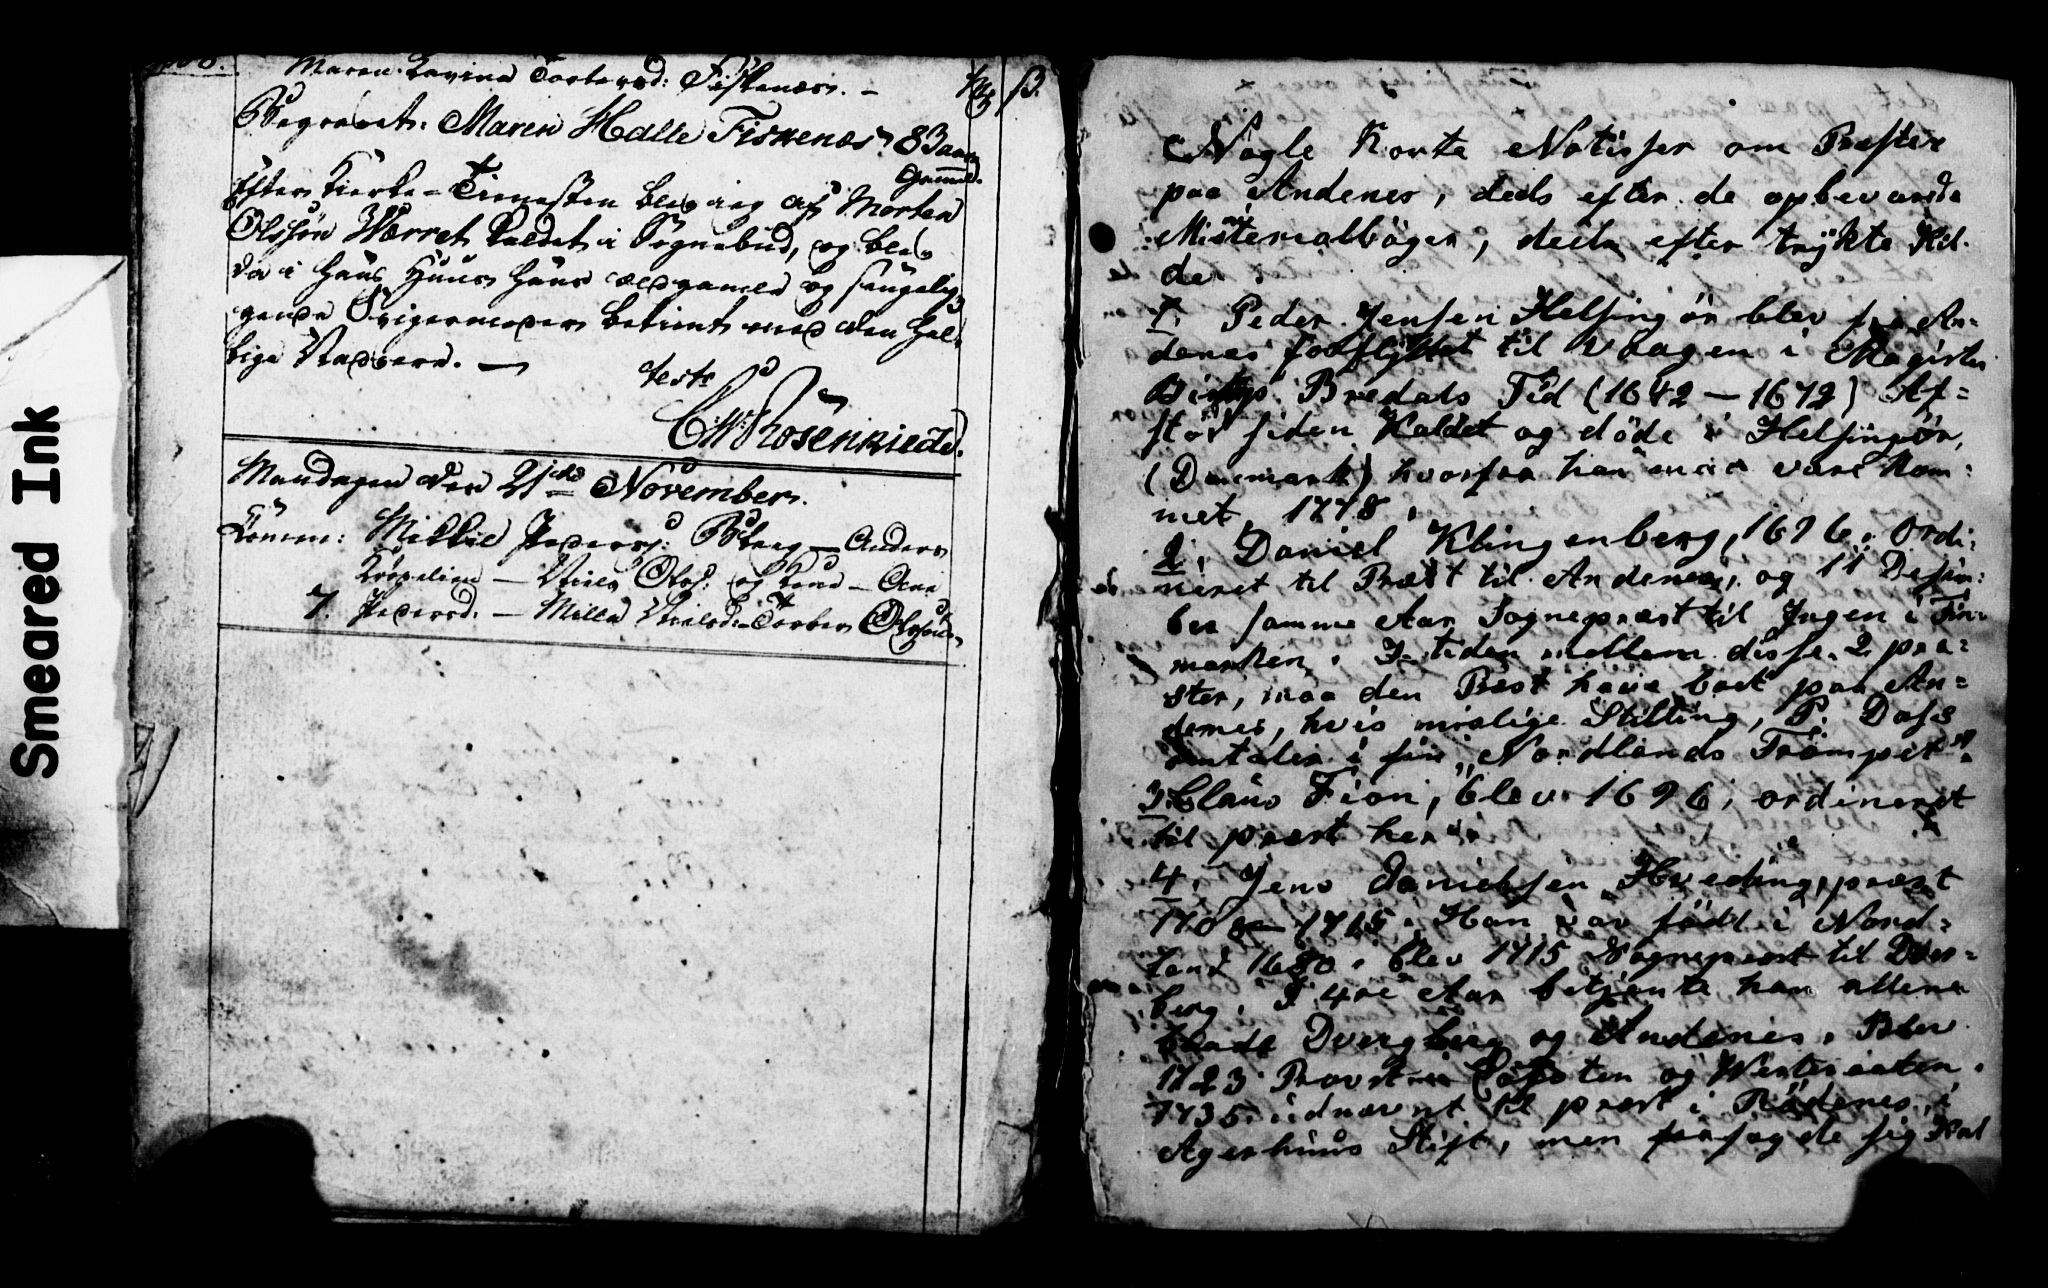 Smeared Ink
Maren Karina Torbersd: Fiskenæs. –
Begravet. Maren Halle Fiskenæs 83 aar
Gammel.
Efter Kirke-Tienesten blev ieg af Morten
Olssøn Værret kaldet i Sognebud, og blev
da i hans Huus hans ældgamle og sengelig
gende Svigermoder betient med den hel-
lige Nadvere. –
teste
CW Rosenkilde.
Mandagen den 21de November.
Comm: Mikkel Peders: Berg – Anders
– Niels Ols: og Kone – Ane
7. Pedersd: – Mille Nielsd: – Torber Olss
Nogle korte Notisser om Præster
paa Andenes, dels efter de opbevarede
Ministerialbøger, deels efter trykte Kil-
der.
1. Peder Jensen Helsingør blev fra An-
denes forflyttet til Vaagen i Magister
Bisp. Bredals Tid (1642 – 1672) Af-
stod siden Kaldet og døde i Helsingør,
(Danmark) hvorfra han maa være kom-
met 1778.
2. Daniel Klingenberg, 1696. Ordi-
neret til Præst til Andenes, og 11 Desem-
ber samme Aar Sognepræst til Ingen i Fin-
marken. I tiden mellem disse 2 præ-
ster, maa den Præst have boet paa An-
denes, hvis mislige Stilling, P. Dass
omtaler i sin "Nordlands Trompet".
3. Claus Fion, blev 1696, ordineret
til præst her.
4. Jens Danielsen Hveding, præst
1708 – 1715. Han var født i Nord-
land 1680. blev 1715 Sognepræst til Dver-
berg. I 4re Aar betjente han allene
baade Dvergberg og Andenes. Blev
1723 Provst i Lofoten og Vesteraalen.
1735 udnævnt til præst i Rødenes i
Agerhuus Stift, men frasagde sig Kal